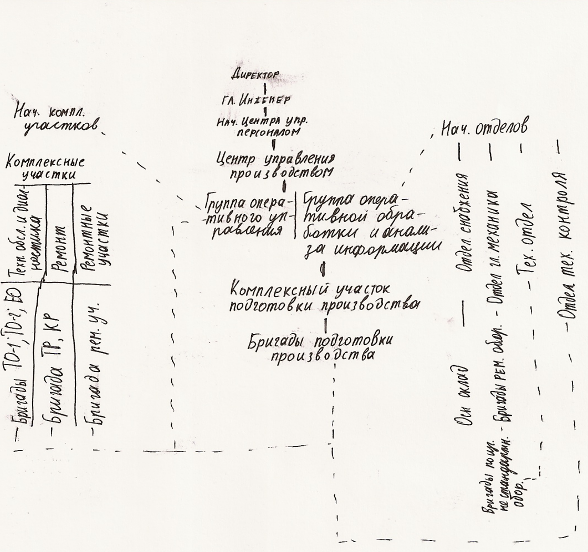 Директор
Гл. Инженер
Нач. Центра упр.
персоналом
Центр управления
производством
Группа опера-
тивного уп-
равления
Группа опера-
тивной обра-
ботки и анали-
за информации
Комплексный участок
подготовки производства
Бригады подготовки
производства
Нач. компл.
участков
Комплексные
участки
Техн. обсл. и диаг-
ностика
Ремонт
Ремонтные
участки
Бригады ТО-1; ТО-2; ЕО
Бригада ТР, КР
Бригада рем. уч.
Нач. отделов
Отдел снабжения
Отдел гл. механика
Тех. отдел
Отдел тех. контроля
Осн склад
Бригады рем. обор.
Бригады по
нестандартн.
обор.